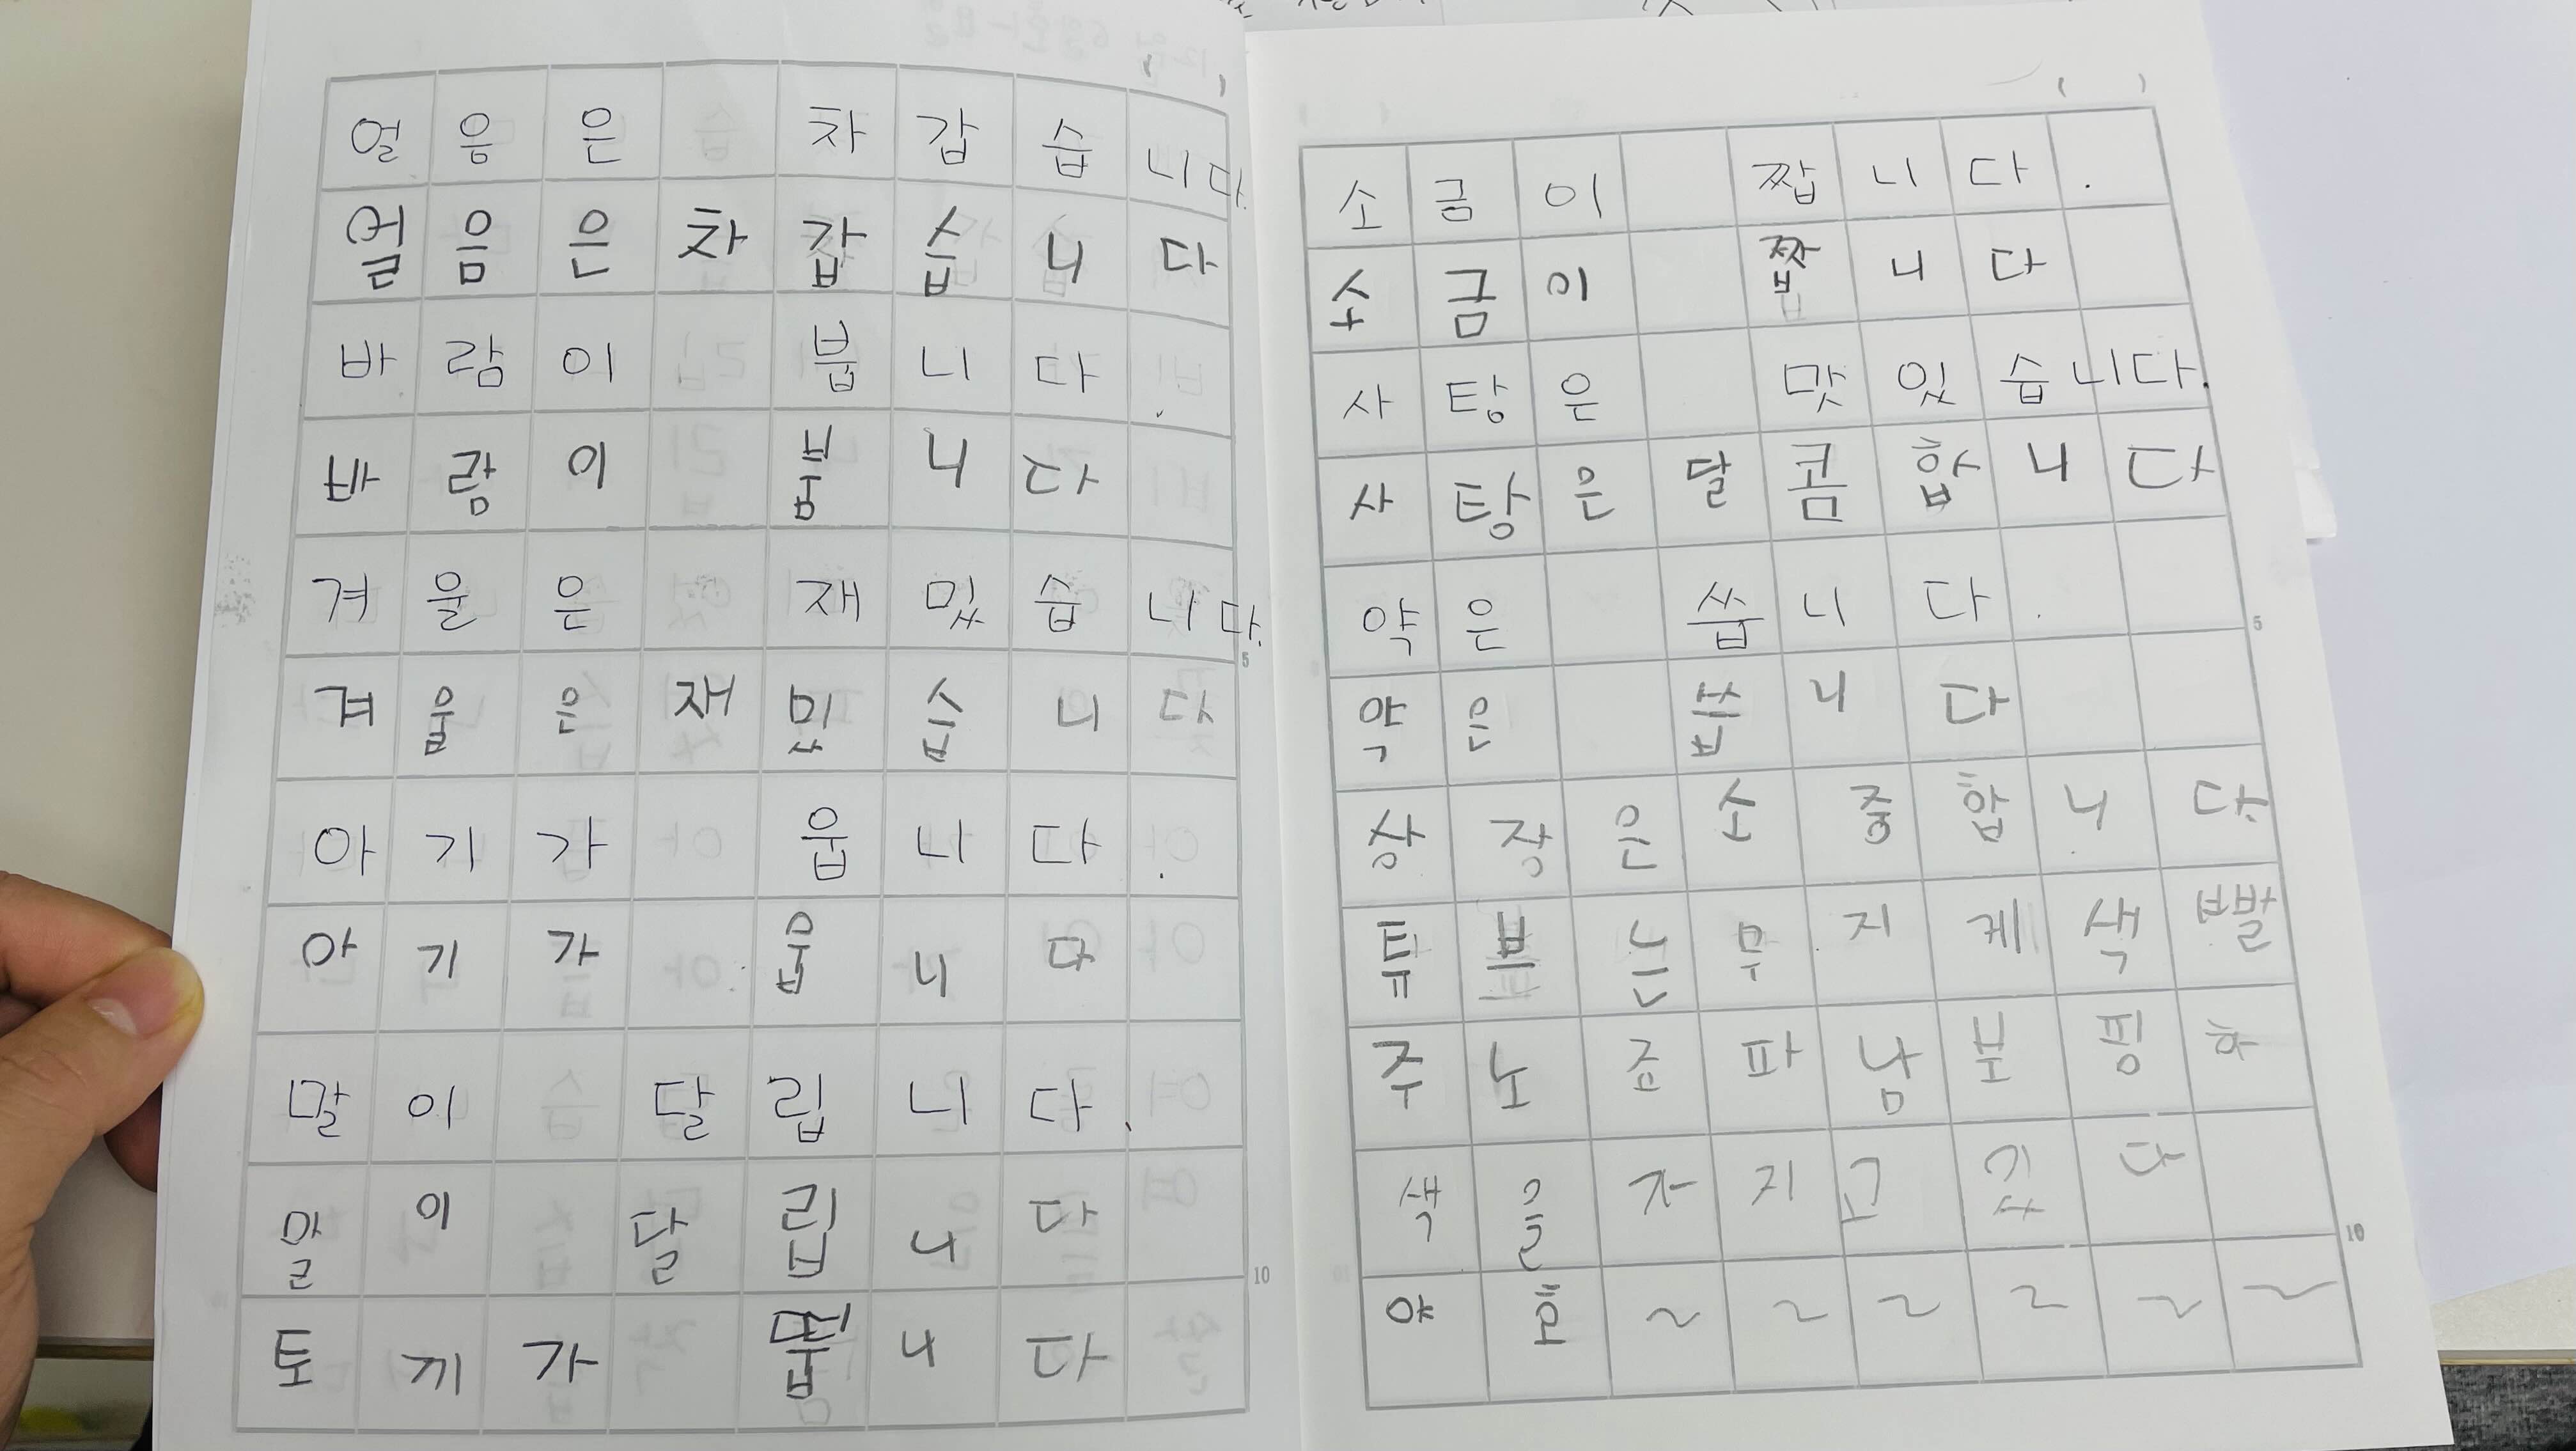 얼음은 차갑습니다.
얼음은차갑습니다
바람이 붑니다.
바람이 붑니다
겨울은 재밌습니다.
겨울은재밋습니다
아기가 웁니다.
아기가 웁니다
말이 달립니다.
말이 달립니다
토끼가 뜁니다
소금이 짭니다.
소금이 짭니다
사탕은 맛있습니다.
사탕은달콤합니다
약은 씁니다.
약은 씁니다
상장은소중합니다.
튜브는무지게색빨
주노초파남보핑하
색을가지고갔다
야호~~~~~~